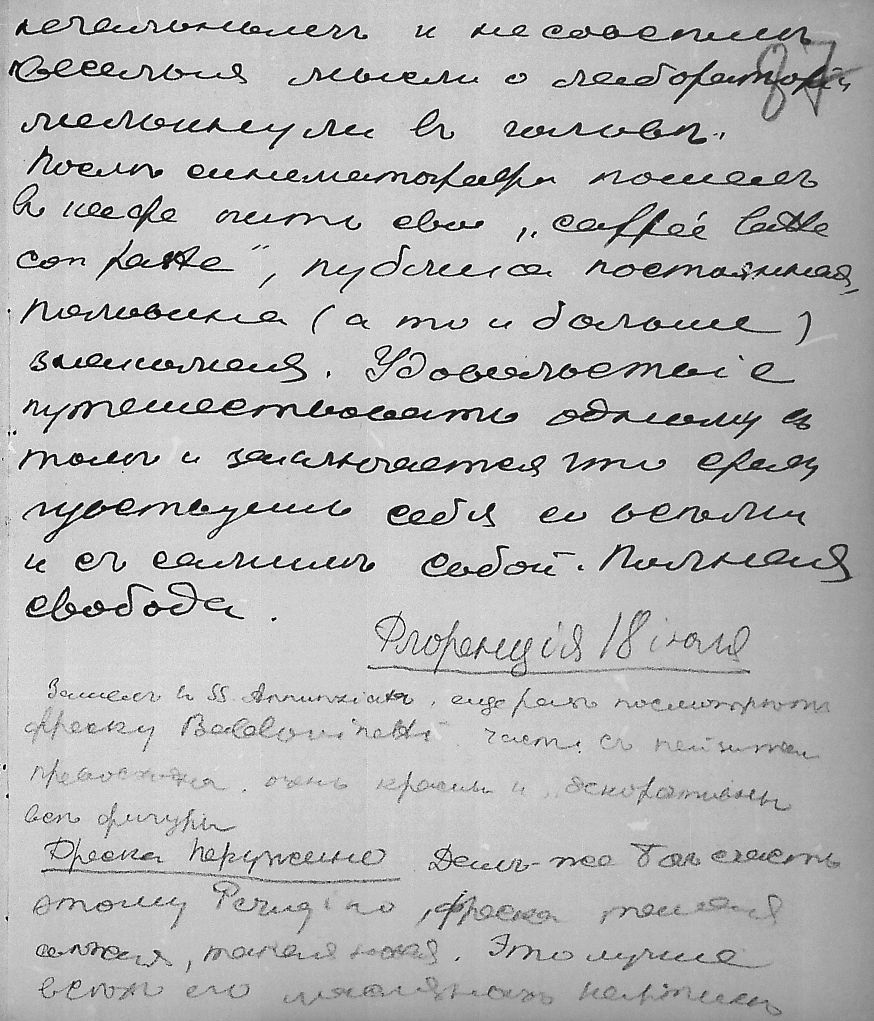 печальныхъ и не совсѣмъ
веселыя мысли о лабораторіи
мелькнули въ головѣ.
Послѣ синематографа пошелъ
въ кафе пить свои „caffé latte
con paste“, публика постоянная,
половина (а то и больше)
знакомая. Удовольствіе
путешествовать одному въ
томъ и заключается что сразу
чувствуешь себя со всѣми
и съ самимъ собой. Полная
свобода.
87
Флоренція 18 іюля
Зашелъ въ SS. Annunziata, еще разъ посмотрѣть
фреску Baldovinetti. часть съ пейзажем
превосходна. очень красивы и декоративны
всѣ фигуры
Фреска Перуджино Далъ-же Богъ счастье
этому Perugino, фреска такая
свѣжая, такая ясная. Это лучше
всѣхъ его картинъ